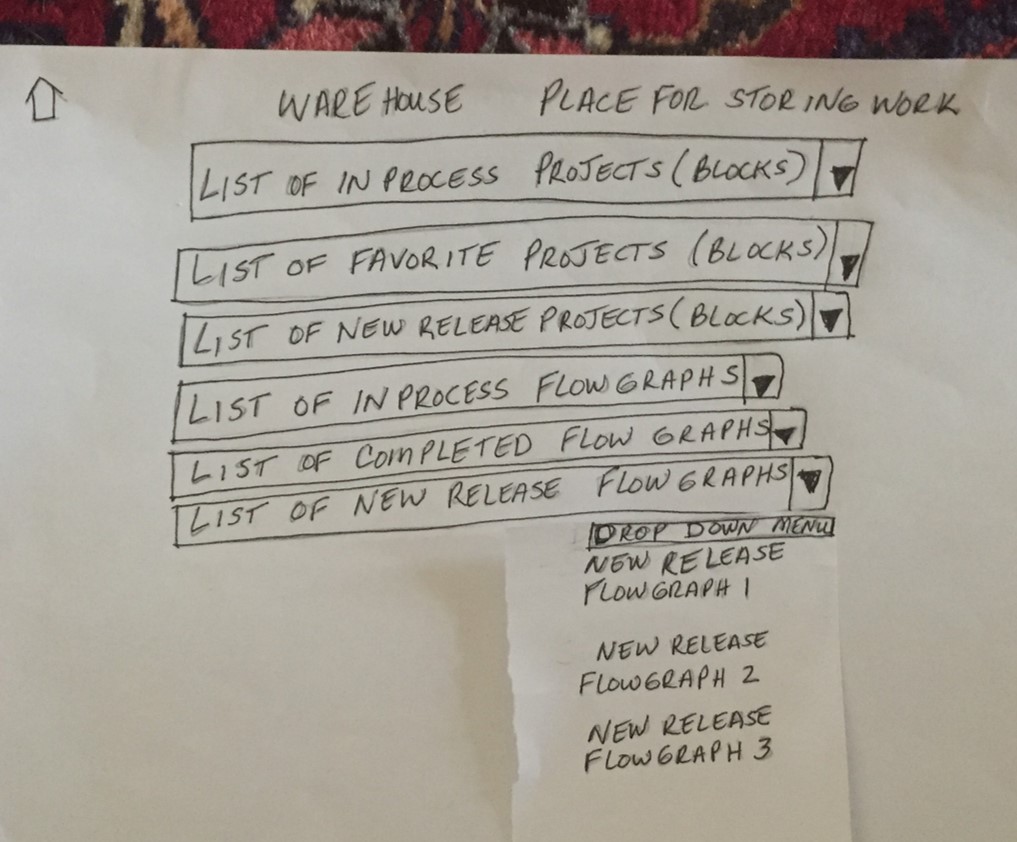 WAREHOUSE PLACE FOR STORING WORK
LIST OF IN PROCESS PROJECTS (BLOCKS)
LIST OF FAVORITE PROJECTS (BLOCKS)
LIST OF NEW RELEASE PROJECTS (BLOCKS)
LIST OF IN PROCESS FLOWGRAPHS
LIST OF COMPLETED FLOW GRAPHS
LIST OF NEW RELEASE FLOWGRAPHS
DROP DOWN MENU
NEW RELEASE
FLOWGRAPH 1
NEW RELEASE
FLOWGRAPH 2
NEW RELEASE
FLOWGRAPH 3